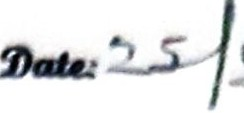 Date: 25/